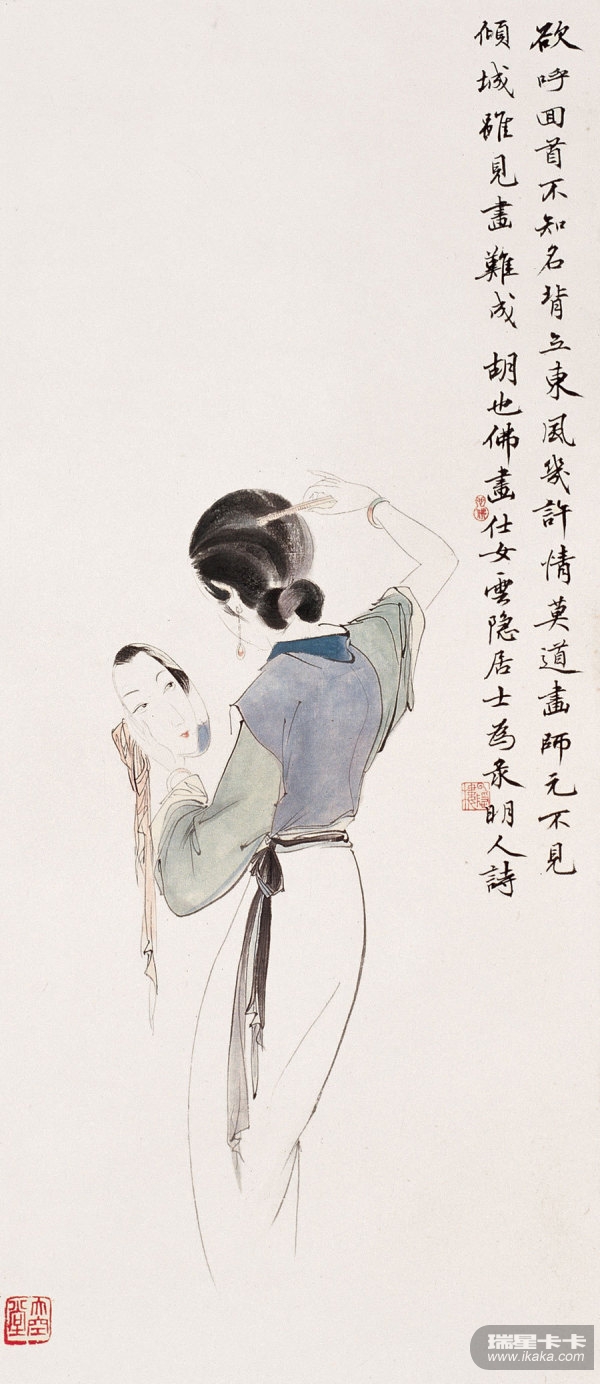 欲呼回首不知名背立東風幾許情莫道畫師元不見
傾城雖見畫難成 胡也佛畫仕女雲隐居士為录明人詩
大空堂
瑞星卡卡
www.ikaka.com